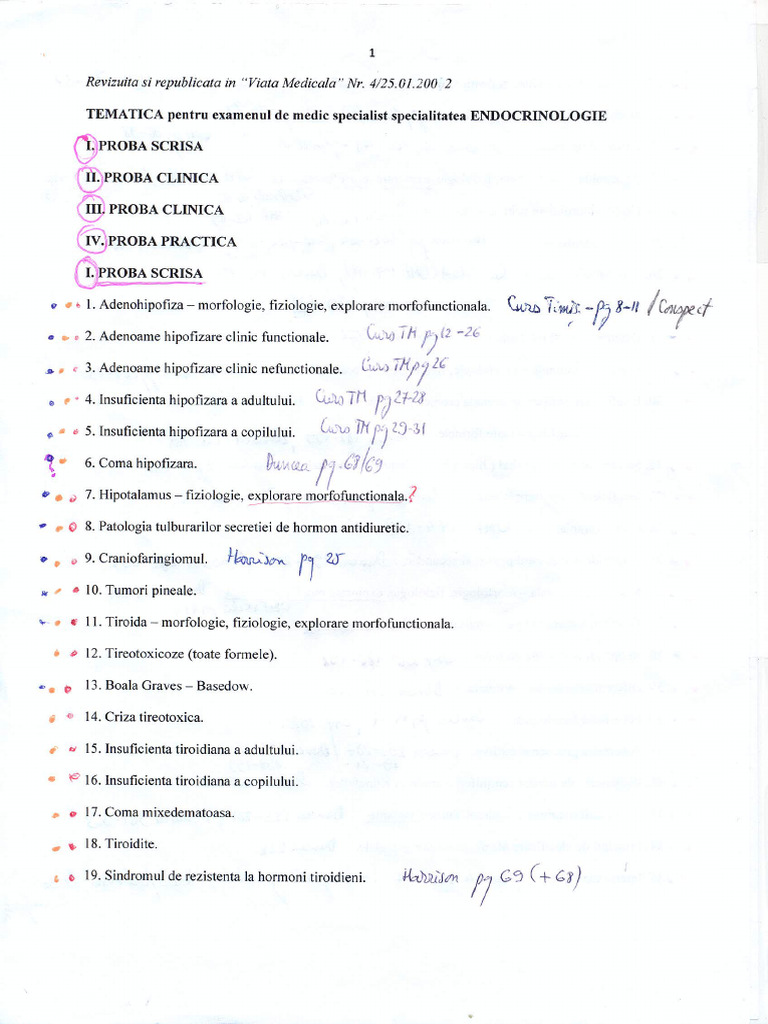 1
Revizuita si republicata in "Viata Medicala" Nr. 4/25.01.200 2
TEMATICA pentru examenul de medic specialist specialitatea ENDOCRINOLOGIE
I. PROBA SCRISA
II. PROBA CLINICA
III. PROBA CLINICA
IV. PROBA PRACTICA
I. PROBA SCRISA
1. Adenohipofiza – morfologie, fiziologie, explorare morfofunctionala. Curs Timiș - pg 8-11 / Conspect
2. Adenoame hipofizare clinic functionale. Curs TM pg 12-26
3. Adenoame hipofizare clinic nefunctionale. Curs TM pg 26
4. Insuficienta hipofizara a adultului. Curs TM pg 27-28
5. Insuficienta hipofizara a copilului. Curs TM pg 29-31
6. Coma hipofizara. Duncea pg. 68/69
7. Hipotalamus – fiziologie, explorare morfofunctionala. ?
8. Patologia tulburarilor secretiei de hormon antidiuretic.
9. Craniofaringiomul. Harrison pg 25
10. Tumori pineale.
11. Tiroida – morfologie, fiziologie, explorare morfofunctionala.
12. Tireotoxicoze (toate formele).
13. Boala Graves – Basedow.
14. Criza tireotoxica.
15. Insuficienta tiroidiana a adultului.
16. Insuficienta tiroidiana a copilului.
17. Coma mixedematoasa.
18. Tiroidite.
19. Sindromul de rezistenta la hormoni tiroidieni. Harrison pg 69 (+68)